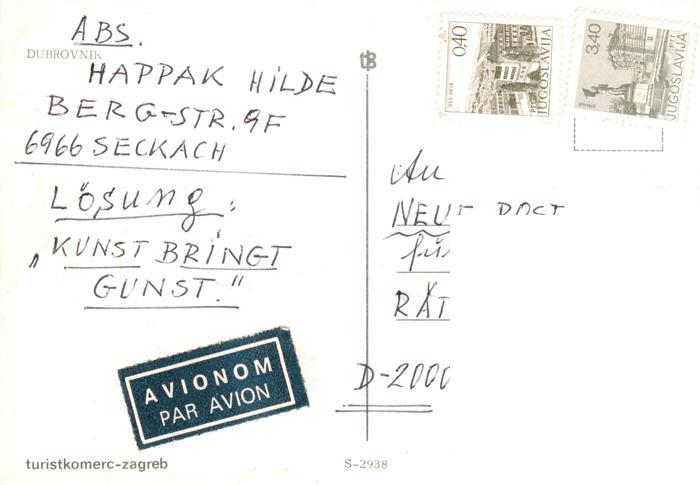 ABS.
DUBROVNIK
HAPPAK HILDE
BERG-STR. 9F
6966 SECKACH
LÖSUNG:
„KUNST BRINGT
GUNST."
AVIONOM
PAR AVION
turistkomerc-zagreb
S-2938
tB
0,40
JUGOSLAVIJA
3,40
PTT
JUGOSLAVIJA
An
NEU
RÄT
D-2000